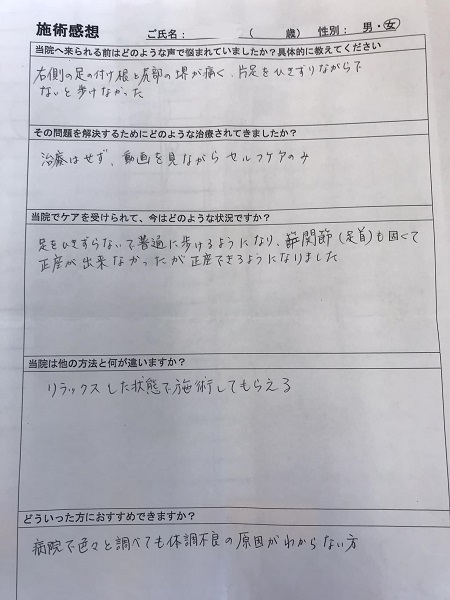 施術感想 ご氏名： ( 歳) 性別： 男・女
当院へ来られる前はどのような声で悩まれていましたか？具体的に教えてください
右側の足の付け根と尻部の境が痛く、片足をひきずりながらで
ないと歩けなかった
その問題を解決するためにどのような治療されてきましたか？
治療はせず、動画を見ながらセルフケアのみ
当院でケアを受けられて、今はどのような状況ですか？
足をひきずらないで普通に歩けるようになり、関節(足首)も固くて
正座が出来なかったが正座できるようになりました
当院は他の方法と何が違いますか？
リラックスした状態で施術してもらえる
どういった方におすすめできますか？
病院で色々と調べても体調不良の原因がわからない方